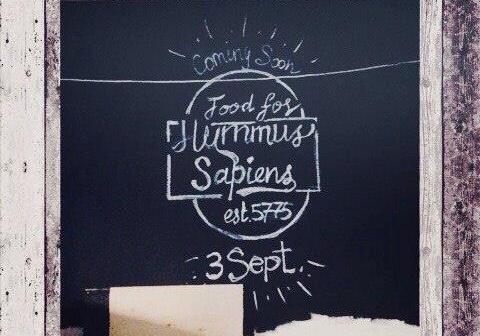 Coming Soon
Food for
Hummus
Sapiens
est.5775
3 Sept.